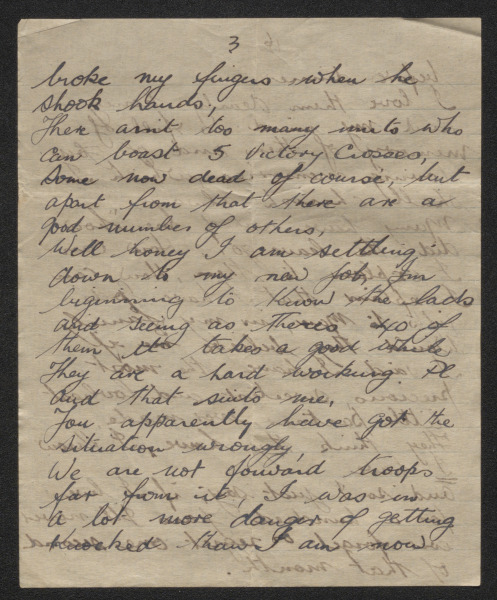 3
broke my fingers when he
shook hands,
There arnt too many units who
can boast 5 Victory Crosses,
Some now dead of course, but
apart from that there are a
good number of others,
Well honey I am settling
down to my new job, Im
beginning to know the lads
and seeing as theres 40 of
them it takes a good while
They are a hard working Pl
and that suits me,
You apparently have got the
situation wrongly,
We are not forward troops
far from it I was in
a lot more danger of getting
knocked than I am now
of that month.